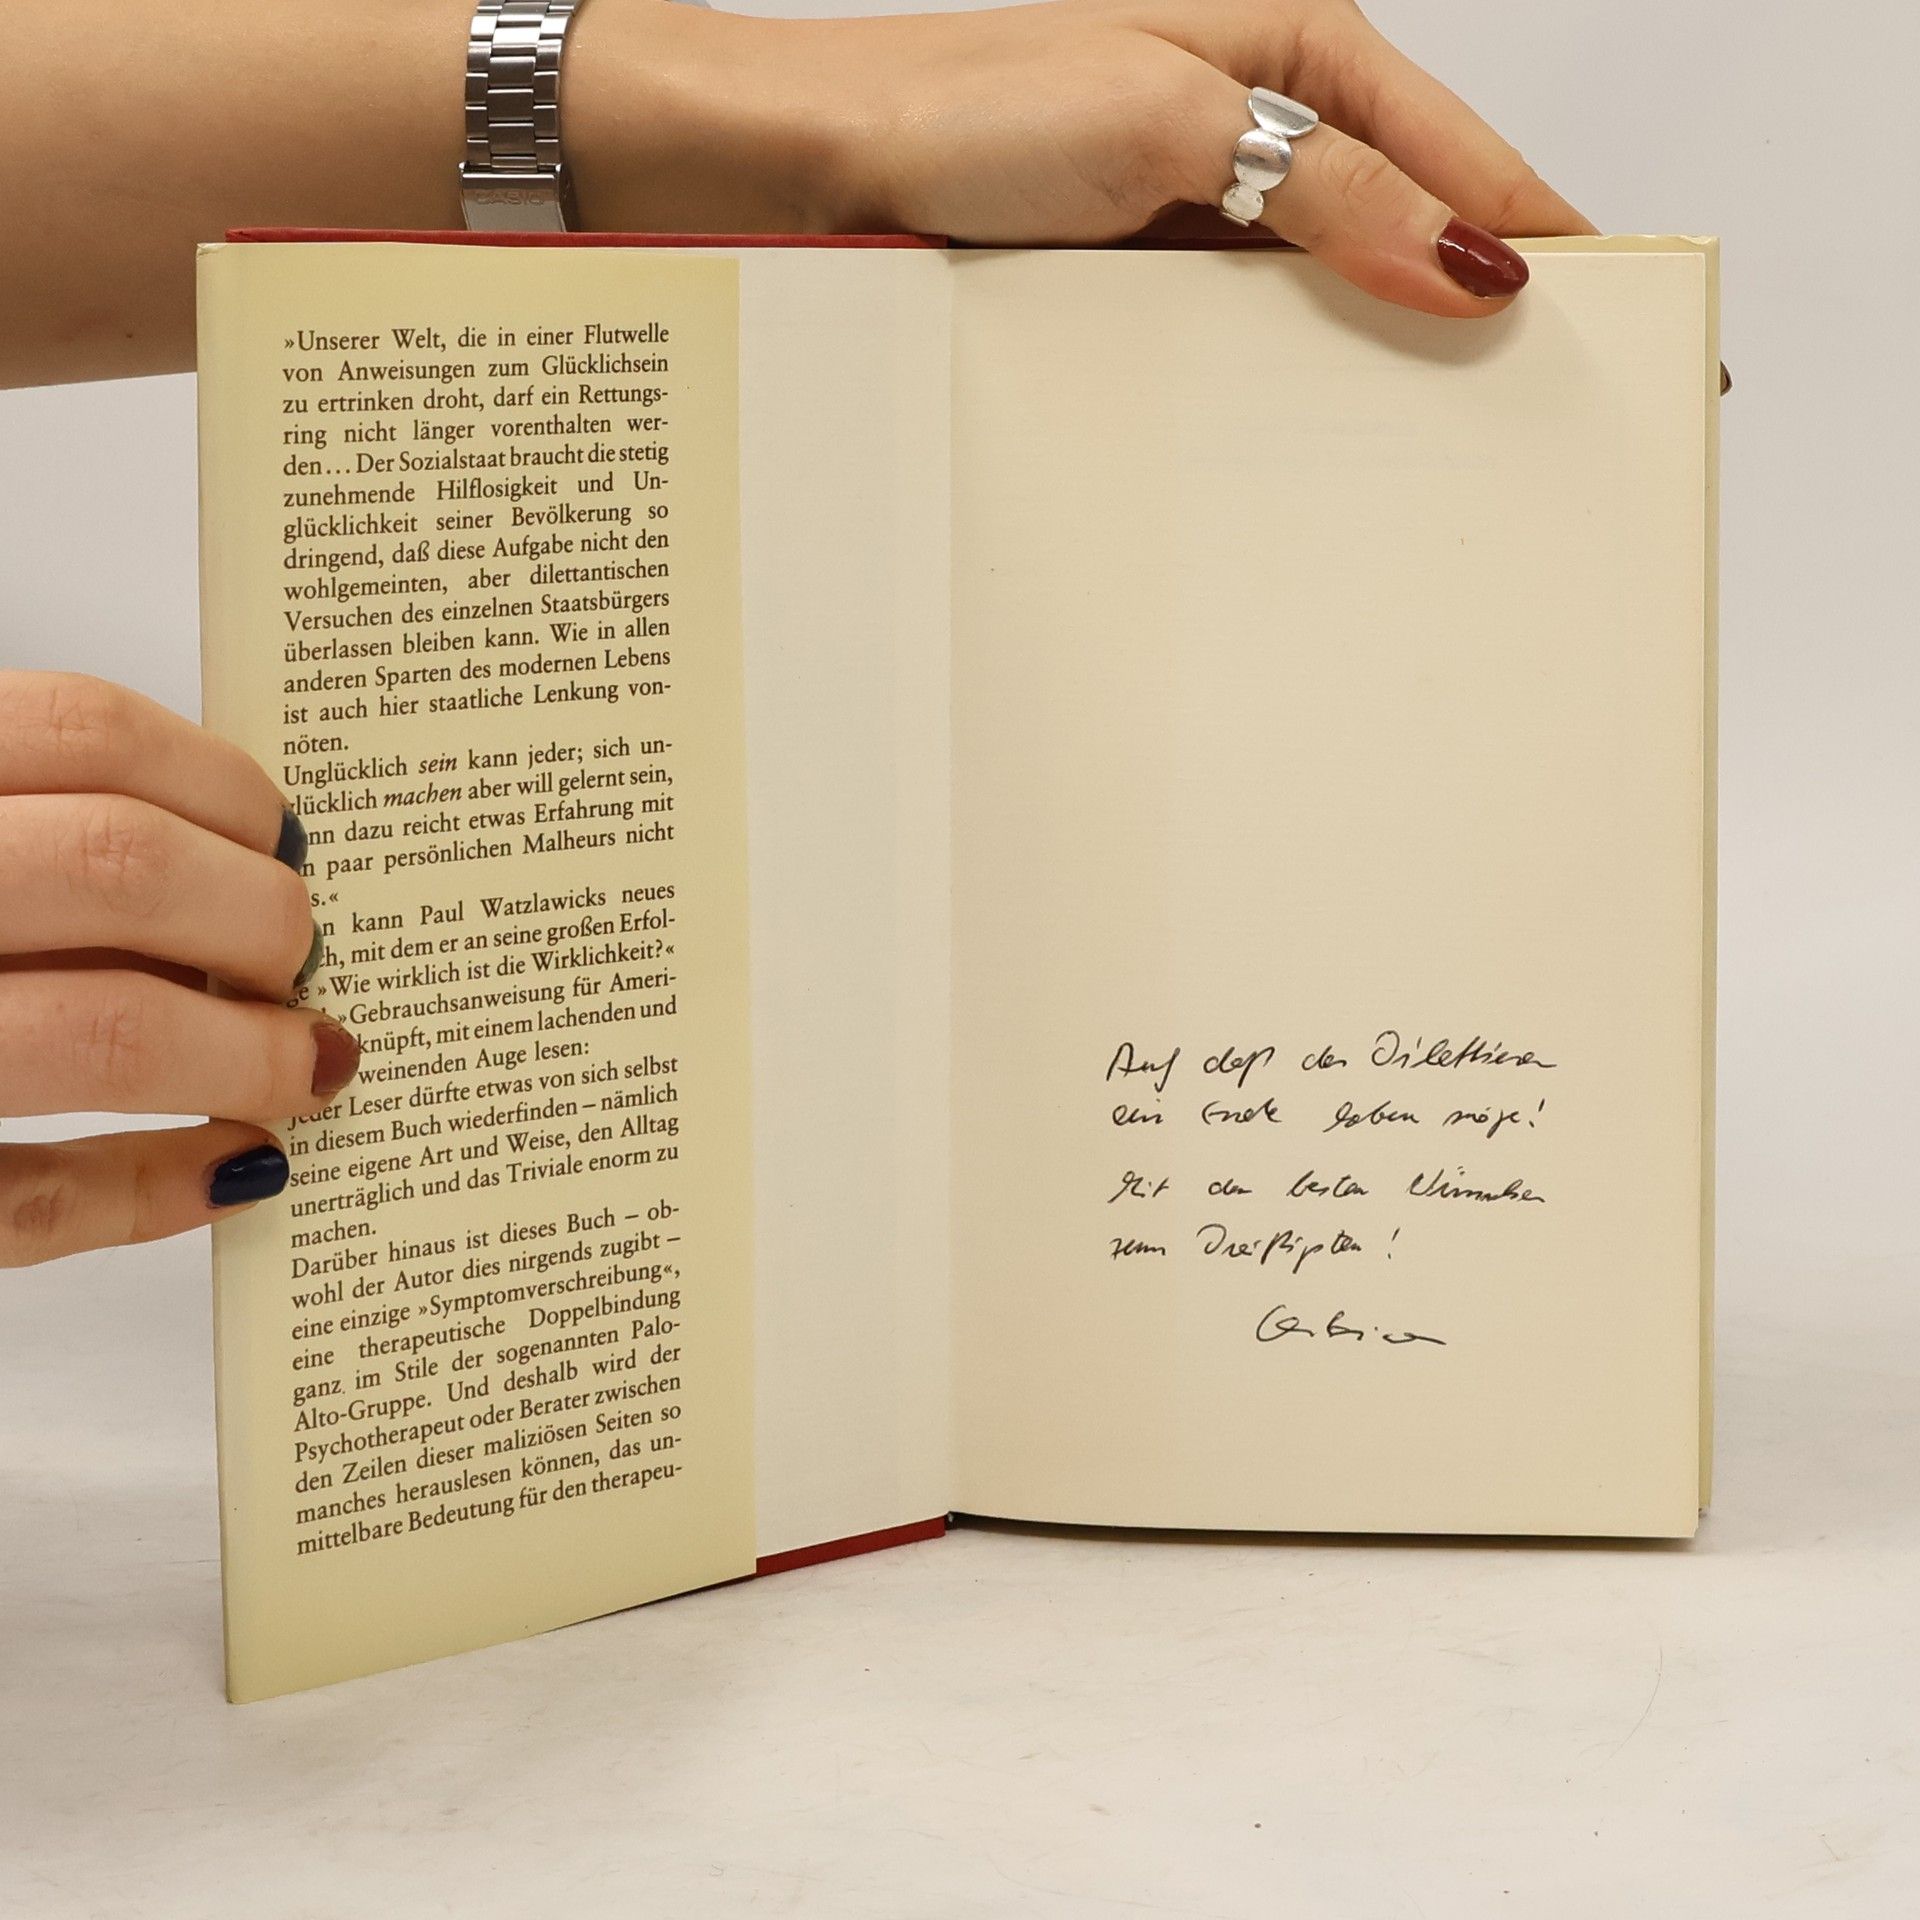 CASIO
»Unserer Welt, die in einer Flutwelle
von Anweisungen zum Glücklichsein
zu ertrinken droht, darf ein Rettungs-
ring nicht länger vorenthalten wer-
den... Der Sozialstaat braucht die stetig
zunehmende Hilflosigkeit und Un-
glücklichkeit seiner Bevölkerung so
dringend, daß diese Aufgabe nicht den
wohlgemeinten, aber dilettantischen
Versuchen des einzelnen Staatsbürgers
überlassen bleiben kann. Wie in allen
anderen Sparten des modernen Lebens
ist auch hier staatliche Lenkung von-
nöten.
Unglücklich sein kann jeder; sich un-
glücklich machen aber will gelernt sein,
nn dazu reicht etwas Erfahrung mit
n paar persönlichen Malheurs nicht
s.«
n kann Paul Watzlawicks neues
ch, mit dem er an seine großen Erfol-
ge »Wie wirklich ist die Wirklichkeit?«
»Gebrauchsanweisung für Ameri-
knüpft, mit einem lachenden und
weinenden Auge lesen:
jeder Leser dürfte etwas von sich selbst
in diesem Buch wiederfinden – nämlich
seine eigene Art und Weise, den Alltag
unerträglich und das Triviale enorm zu
machen.
Darüber hinaus ist dieses Buch – ob-
wohl der Autor dies nirgends zugibt –
eine einzige »Symptomverschreibung«,
eine therapeutische Doppelbindung
ganz im Stile der sogenannten Palo-
Alto-Gruppe. Und deshalb wird der
Psychotherapeut oder Berater zwischen
den Zeilen dieser maliziösen Seiten so
manches herauslesen können, das un-
mittelbare Bedeutung für den therapeu-
Auf daß das Dilettieren
ein Ende haben möge!
Mit den besten Wünschen
zum Dreißigsten!